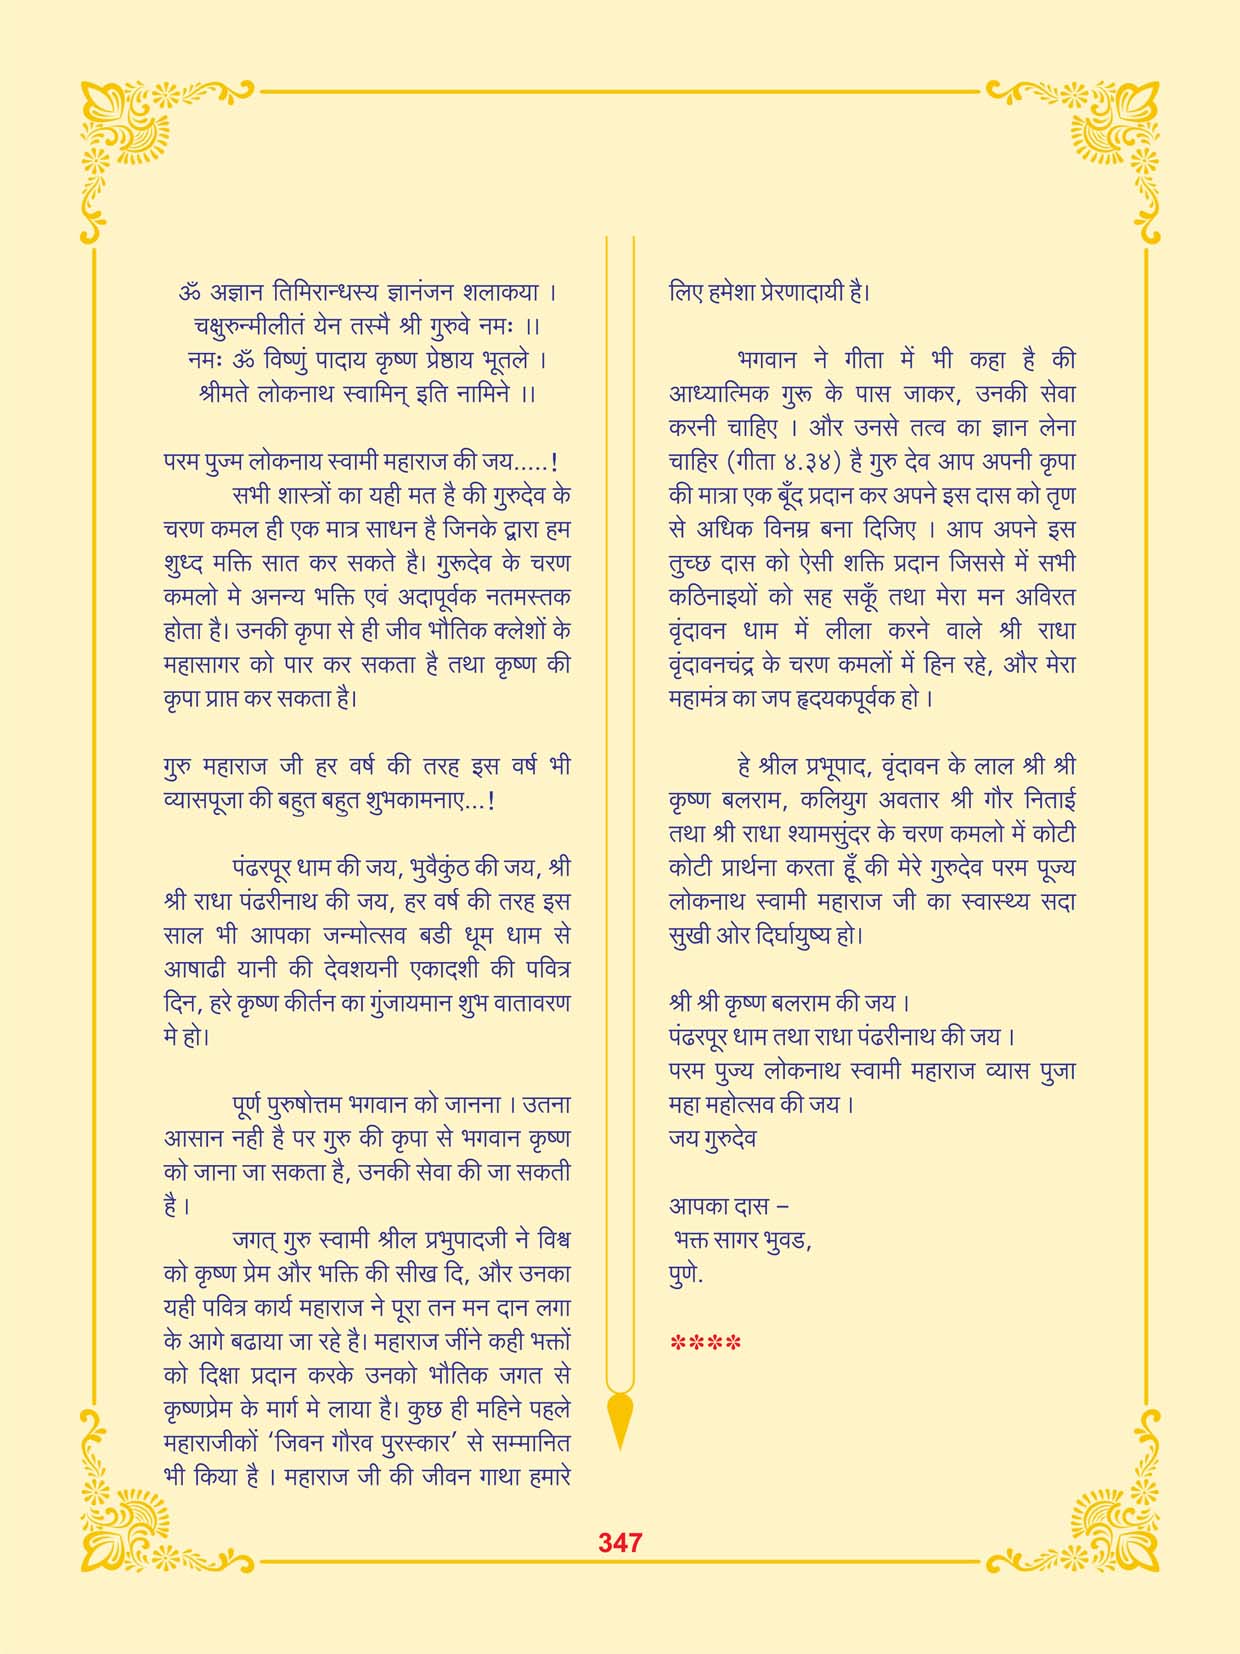 ॐ अज्ञान तिमिरान्धस्य ज्ञानंजन शलाकया ।
चक्षुरुन्मीलीतं येन तस्मै श्री गुरुवे नमः ।।
नमः ॐ विष्णुं पादाय कृष्ण प्रेष्ठाय भूतले ।
श्रीमते लोकनाथ स्वामिन् इति नामिने ।।
परम पुज्म लोकनाय स्वामी महाराज की जय.....!
सभी शास्त्रों का यही मत है की गुरुदेव के
चरण कमल ही एक मात्र साधन है जिनके द्वारा हम
शुध्द मक्ति सात कर सकते है। गुरूदेव के चरण
कमलो मे अनन्य भक्ति एवं अदापूर्वक नतमस्तक
होता है। उनकी कृपा से ही जीव भौतिक क्लेशों के
महासागर को पार कर सकता है तथा कृष्ण की
कृपा प्राप्त कर सकता है।
गुरु महाराज जी हर वर्ष की तरह इस वर्ष भी
व्यासपूजा की बहुत बहुत शुभकामनाए...!
पंढरपूर धाम की जय, भुवैकुंठ की जय, श्री
श्री राधा पंढरीनाथ की जय, हर वर्ष की तरह इस
साल भी आपका जन्मोत्सव बडी धूम धाम से
आषाढी यानी की देवशयनी एकादशी की पवित्र
दिन, हरे कृष्ण कीर्तन का गुंजायमान शुभ वातावरण
मे हो।
पूर्ण पुरुषोत्तम भगवान को जानना । उतना
आसान नही है पर गुरु की कृपा से भगवान कृष्ण
को जाना जा सकता है, उनकी सेवा की जा सकती
है ।
जगत् गुरु स्वामी श्रील प्रभुपादजी ने विश्व
को कृष्ण प्रेम और भक्ति की सीख दि, और उनका
यही पवित्र कार्य महाराज ने पूरा तन मन दान लगा
के आगे बढाया जा रहे है। महाराज जींने कही भक्तों
को दिक्षा प्रदान करके उनको भौतिक जगत से
कृष्णप्रेम के मार्ग मे लाया है। कुछ ही महिने पहले
महाराजीकों ‘जिवन गौरव पुरस्कार’ से सम्मानित
भी किया है । महाराज जी की जीवन गाथा हमारे
लिए हमेशा प्रेरणादायी है।
भगवान ने गीता में भी कहा है की
आध्यात्मिक गुरू के पास जाकर, उनकी सेवा
करनी चाहिए । और उनसे तत्व का ज्ञान लेना
चाहिर (गीता ४.३४) है गुरु देव आप अपनी कृपा
की मात्रा एक बूँद प्रदान कर अपने इस दास को तृण
से अधिक विनम्र बना दिजिए । आप अपने इस
तुच्छ दास को ऐसी शक्ति प्रदान जिससे में सभी
कठिनाइयों को सह सकूँ तथा मेरा मन अविरत
वृंदावन धाम में लीला करने वाले श्री राधा
वृंदावनचंद्र के चरण कमलों में हिन रहे, और मेरा
महामंत्र का जप हृदयकपूर्वक हो ।
हे श्रील प्रभूपाद, वृंदावन के लाल श्री श्री
कृष्ण बलराम, कलियुग अवतार श्री गौर निताई
तथा श्री राधा श्यामसुंदर के चरण कमलो में कोटी
कोटी प्रार्थना करता हूँ की मेरे गुरुदेव परम पूज्य
लोकनाथ स्वामी महाराज जी का स्वास्थ्य सदा
सुखी ओर दिर्घायुष्य हो।
श्री श्री कृष्ण बलराम की जय ।
पंढरपूर धाम तथा राधा पंढरीनाथ की जय ।
परम पुज्य लोकनाथ स्वामी महाराज व्यास पुजा
महा महोत्सव की जय ।
जय गुरुदेव
आपका दास –
भक्त सागर भुवड,
पुणे.
****
347